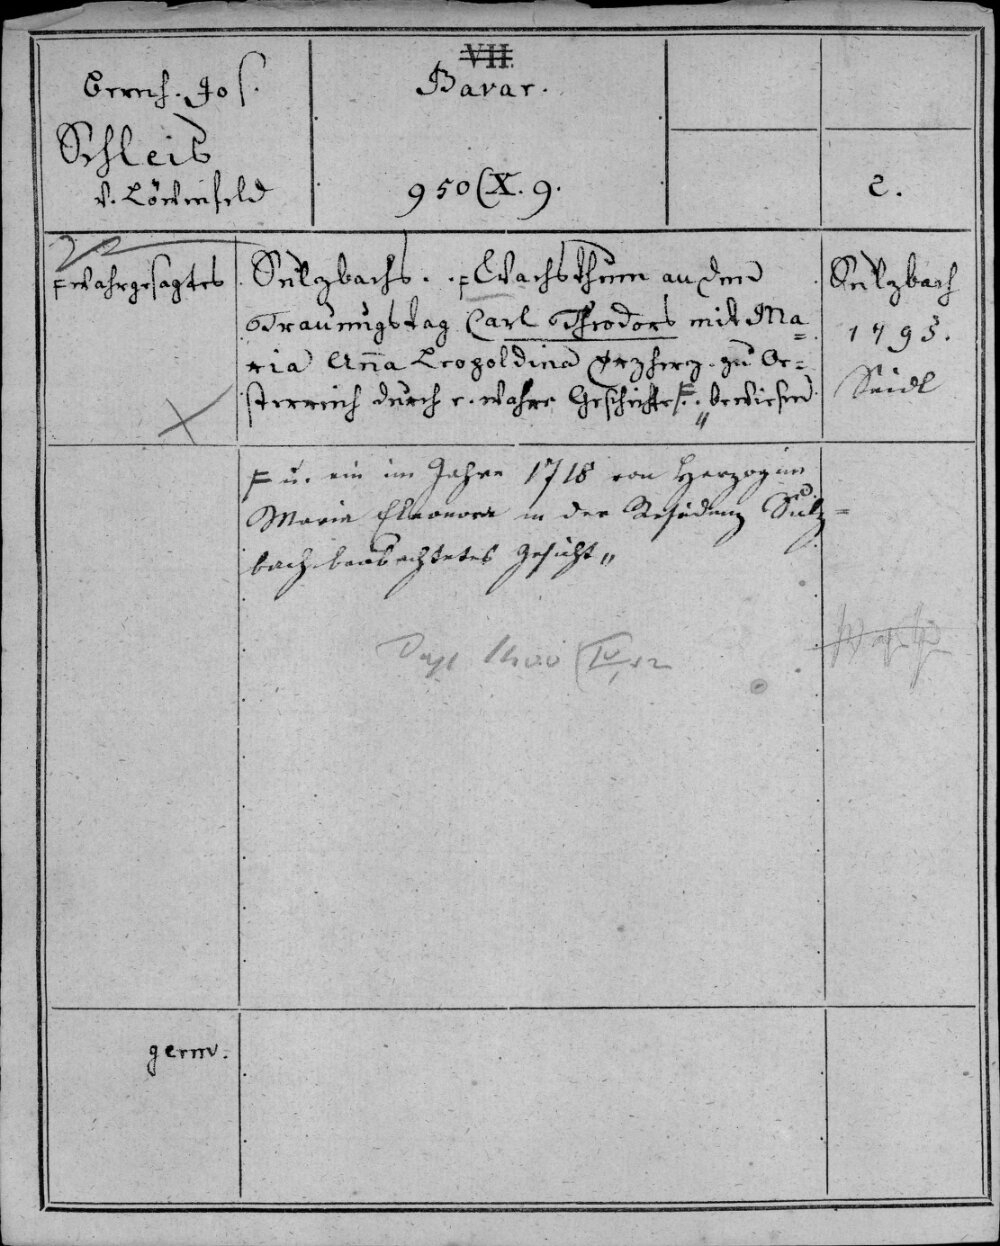 Bernh. Jos.
Schleis
v. Löwenfeld
VII.
Bavar.
950(X. 9.
2.
wahrgesagtes
Sulzbachs. Wachsthum an dem
Trauungstag Carl Theodors mit Ma=
ria Anna Leopoldina Erzherz. zu Oe=
sterreich durch e. wahre Geschichte bewiesen
Sulzbach
1795.
Seidl
u. ein im Jahre 1718 von Herzogin
Maria Eleonora in der Residenz Sulz=
bach beobachtetes Gesicht„
germ.